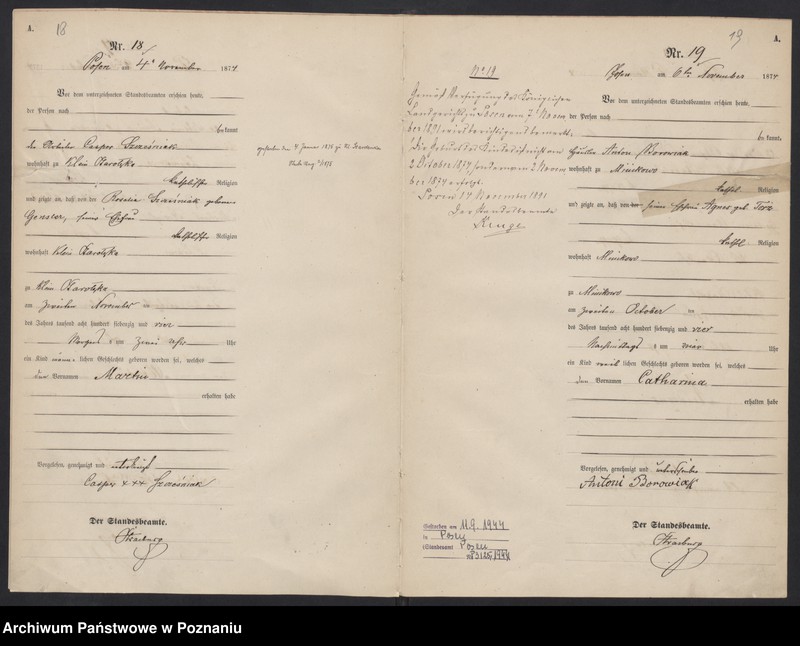 A. 18
Nr. 18
Posen am 4ten November 1874
Vor dem unterzeichneten Standesbeamten erschien heute,
der Person nach
bekannt
Casper Szcześniak
wohnhaft zu Klein Starołęka
katholischer Religion
und zeigte an, daß von der Rosalia Szcześniak geborene
seiner Ehefrau
katholischer Religion
wohnhaft Klein Starołęka
zu Klein Starołęka
am zweiten November
des Jahres tausend acht hundert siebenzig und vier
Morgens um zwei Uhr
ein Kind männlichen Geschlechts geboren worden sei, welches
den Vornamen Martin
erhalten habe
Vorgelesen, genehmigt und
Casper +++ Szcześniak
Der Standesbeamte.
gestorben den Januar
No 19
Gemäß Verfügung des Königlichen
Landgerichts zu Posen vom 7 Novem
ber 1891 wird berichtigend bemerkt:
Die Geburt des Kindes ist nicht am
2 October 1874, sondern am 2 Novem
ber 1874 erfolgt.
Posen 14 November 1891
Der Standesbeamte
Kruge
Gestorben am 11.9.1944
in Posen
(Standesamt Posen
Nr 3125/1944
19 A.
Nr. 19
Posen am 6ten November 1874
Vor dem unterzeichneten Standesbeamten erschien heute,
der Person nach
bekannt,
Anton Borowiak
wohnhaft zu Minikowo
kathol. Religion
und zeigte an, daß von seiner Ehefrau Agnes geb.
kathol. Religion
wohnhaft Minikowo
zu Minikowo
am zweiten October
des Jahres tausend acht hundert siebenzig und vier
Nachmittags um vier Uhr
ein Kind weiblichen Geschlechts geboren worden sei, welches
den Vornamen Catharina
erhalten habe
Vorgelesen, genehmigt und unterschrieben
Antoni Borowiak
Der Standesbeamte.
Archiwum Państwowe w Poznaniu